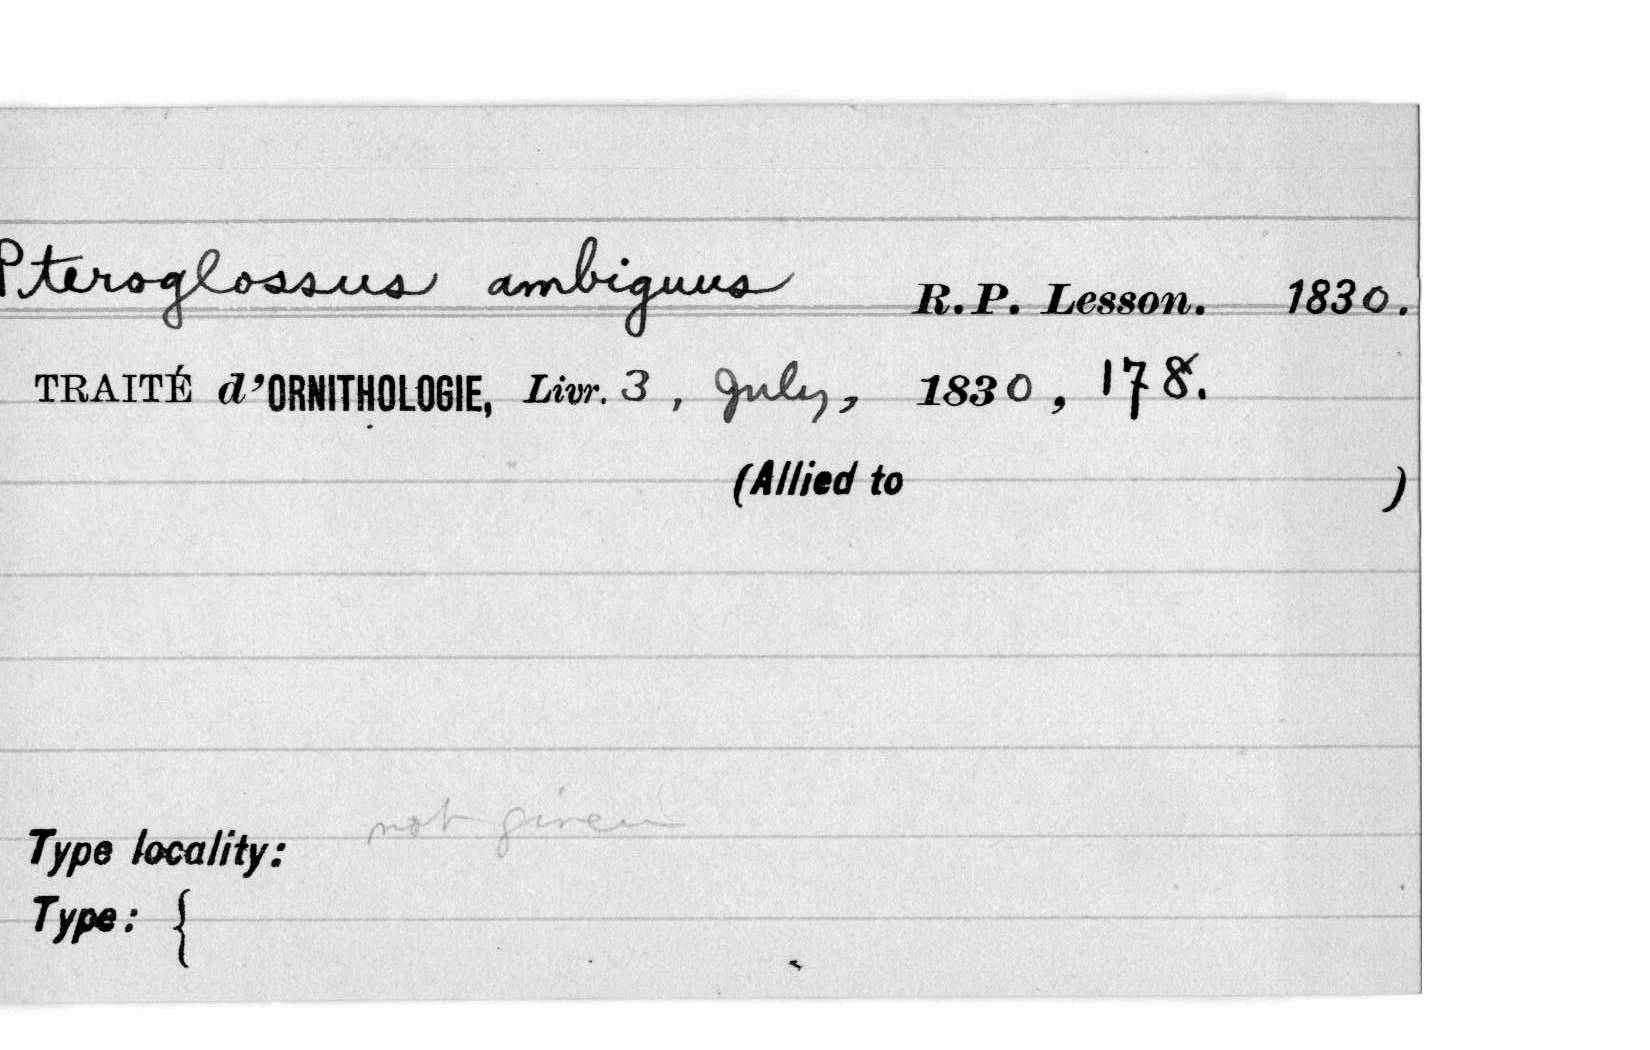 Pteroglossus ambiguus R.P. Lesson. 1830.
TRAITÉ d'ORNITHOLOGIE, Livr. 3, July, 1830, 178.
(Allied to )
Type locality: not given
Type: {